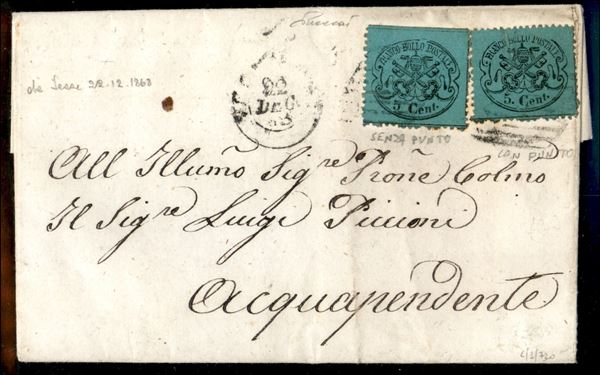 FRANCO BOLLO POSTALE
5 Cent.
FRANCO BOLLO POSTALE
5. Cent.
22
DEC
68
de 22.12.1868
SENZA PUNTO
CON PUNTO
All Illumo Sigre Prone Colmo
Il Sigre Luigi Piccioni
Acquapendente